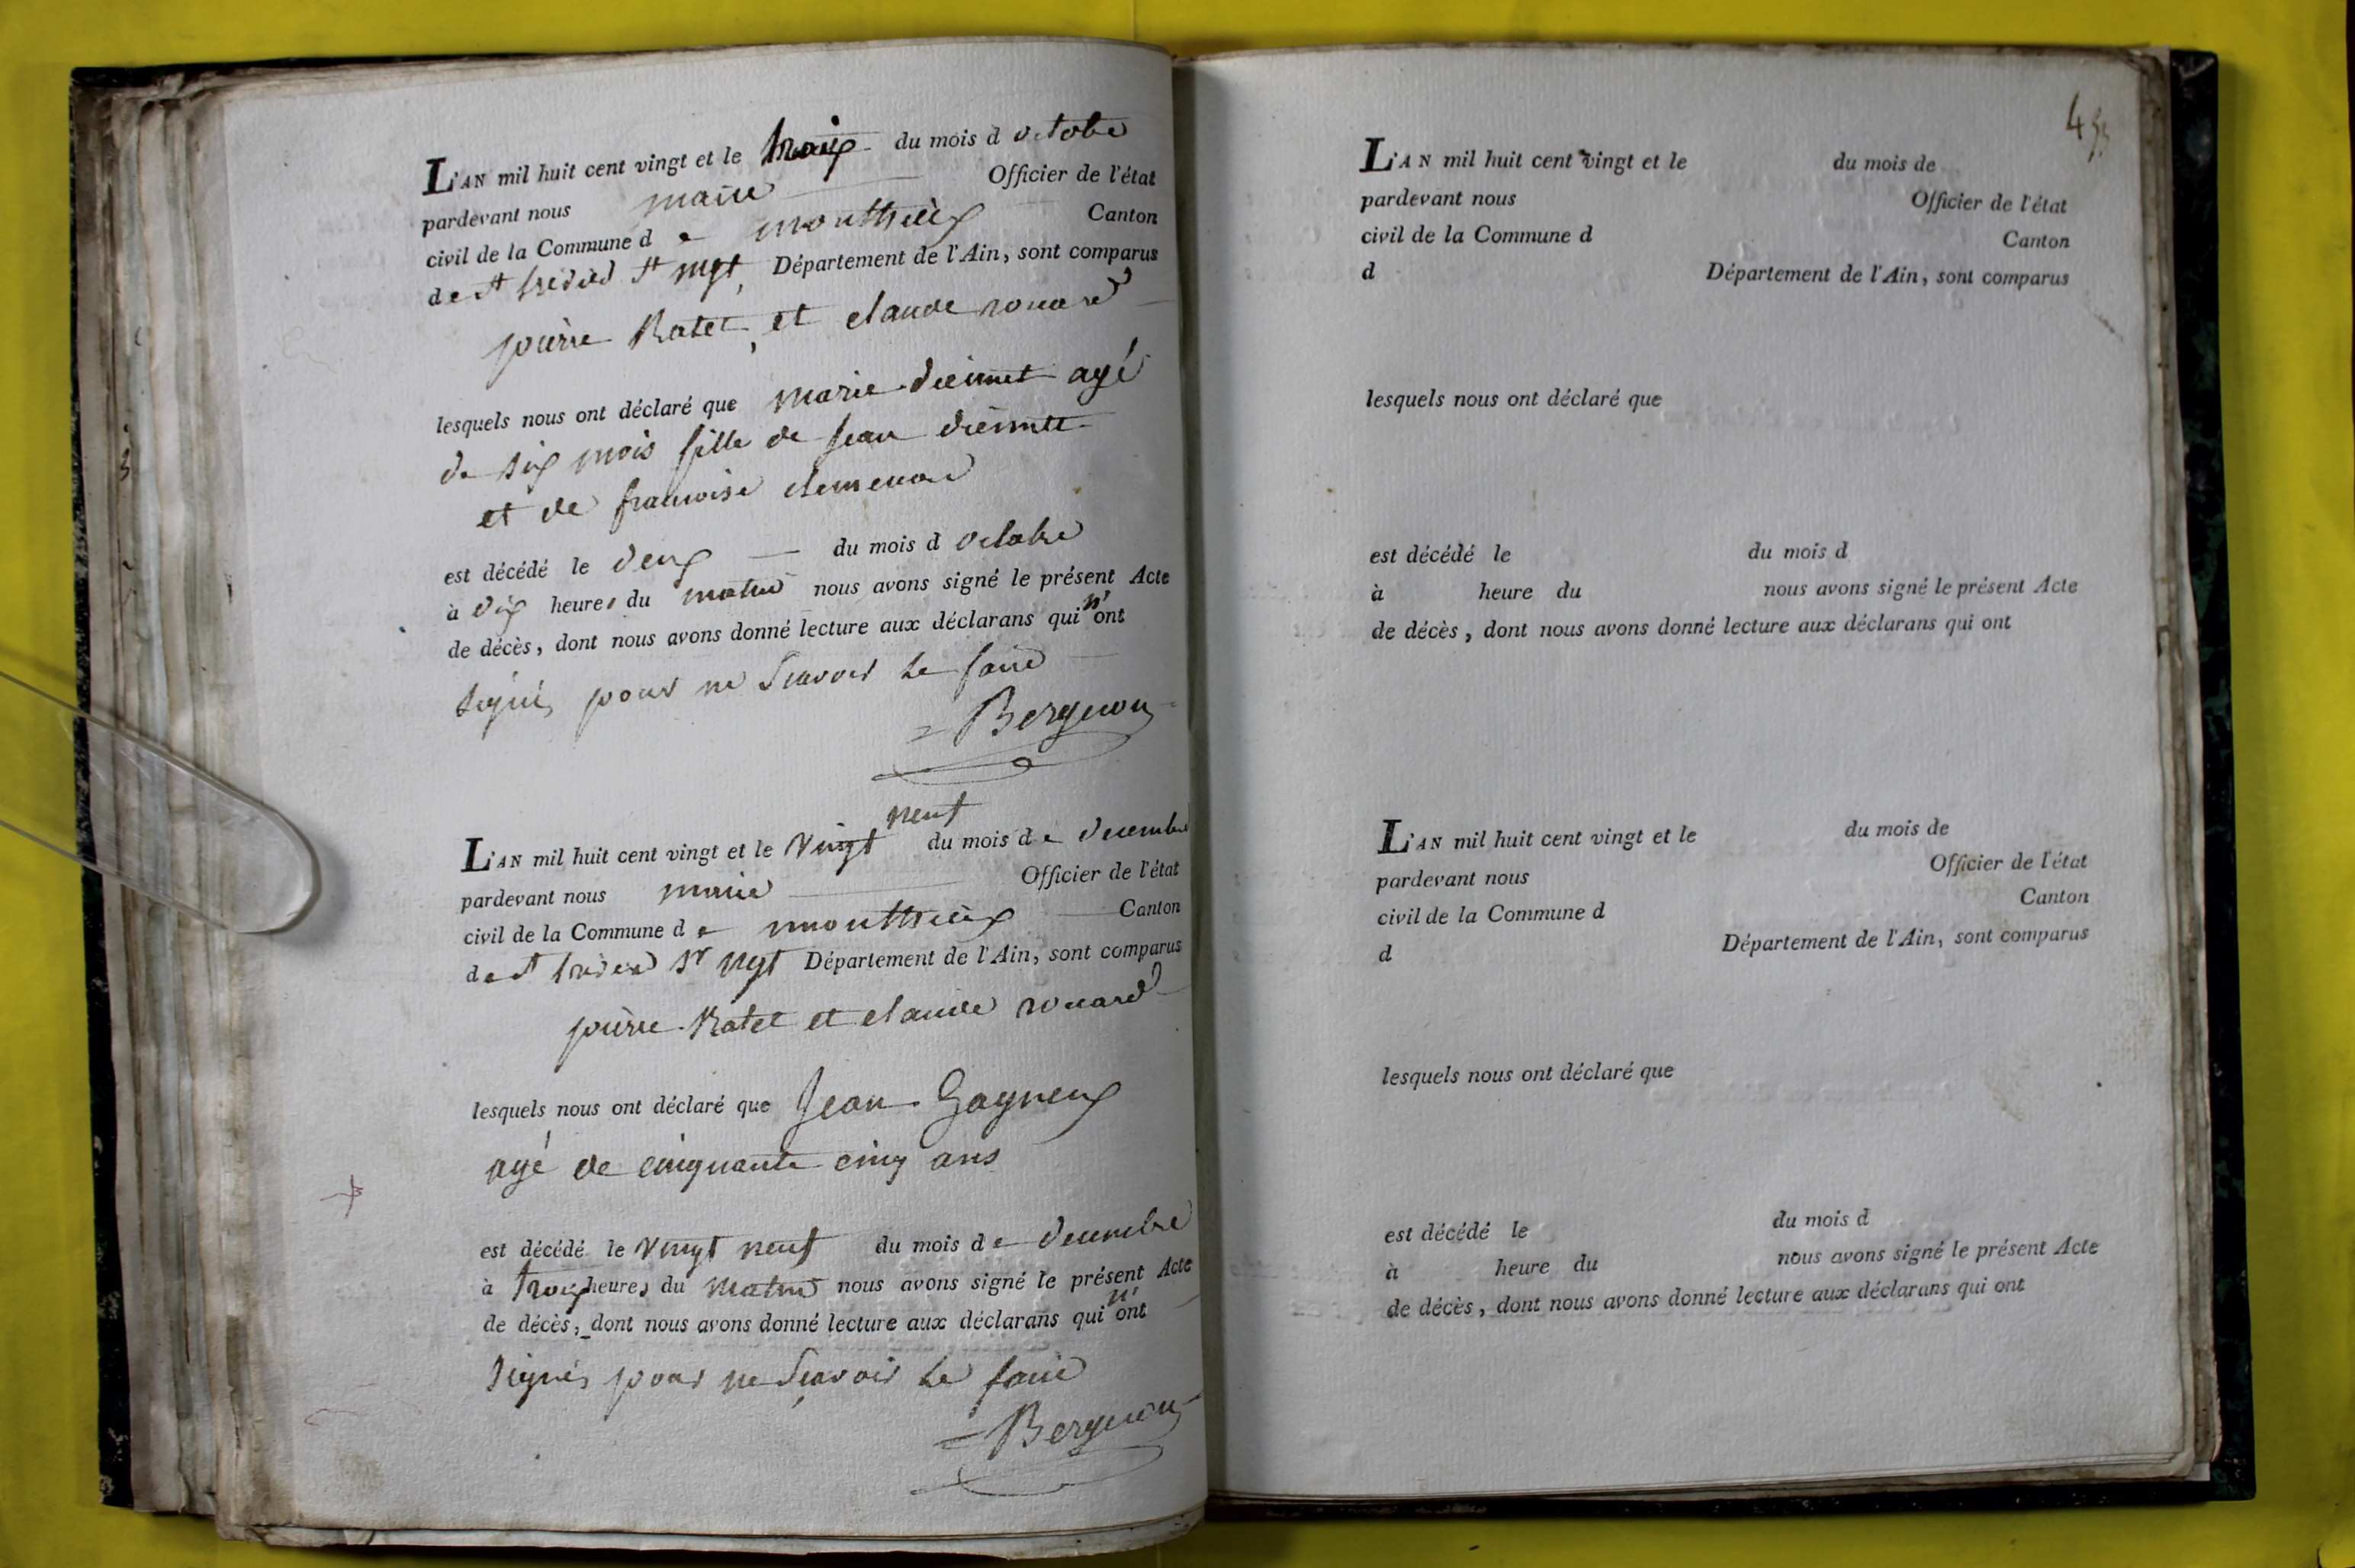 L'AN mil huit cent vingt et le trois du mois d octobre
pardevant nous maire Officier de l'état
civil de la Commune d e monthieux Canton
de St trivier St Mgt, Département de l'Ain, sont comparus
pierre Ratet, et claude rouard
lesquels nous ont déclaré que marie viennet agé
de six mois fille de jean viennet
et de francoise
est décédé le deux du mois d octobre
à dix heures du matin nous avons signé le présent Acte
de décès, dont nous avons donné lecture aux déclarans qui n'ont
signés pour ne scavoir le faire
Bergeron
neuf
L'AN mil huit cent vingt et le vingt du mois de decembre
pardevant nous maire Officier de l'état
civil de la Commune d e monthieux Canton
de St trivier sr Mgt Département de l'Ain, sont comparus
pierre Ratet et claude rouard
lesquels nous ont déclaré que Jean Gagneux
agé de cinquante cinq ans
est décédé le vingt neuf du mois de decembre
à trois heures du matin nous avons signé le présent Acte
de décès, dont nous avons donné lecture aux déclarans qui n'ont
signés pour ne scavoir le faire
Bergeron
L'AN mil huit cent vingt et le du mois de
pardevant nous Officier de l'état
civil de la Commune d Canton
d Département de l'Ain, sont comparus
lesquels nous ont déclaré que
est décédé le du mois d
à heure du nous avons signé le présent Acte
de décès, dont nous avons donné lecture aux déclarans qui ont
L'AN mil huit cent vingt et le du mois de
pardevant nous Officier de l'état
civil de la Commune d Canton
d Département de l'Ain, sont comparus
lesquels nous ont déclaré que
est décédé le du mois d
à heure du nous avons signé le présent Acte
de décès, dont nous avons donné lecture aux déclarans qui ont